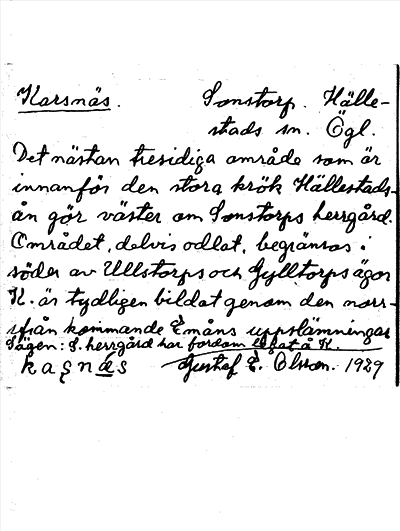 Karsnäs. Sonstorp. Hälle-
stads sn. Ögl.
Det nästan tresidiga område som är
innanför den stora krök Hällestads-
ån gör väster om Sonstorps herrgård.
Området, delvis odlat, begränsas i
söder av Ullstorps och Gylltorps ägor
K. är tydligen bildat genom den norr-
ifrån kommande Emåns uppslämningar
Sägen: S. herrgård har fordom legat å K.
kaṣnæs Gustaf E. Olsson. 1929